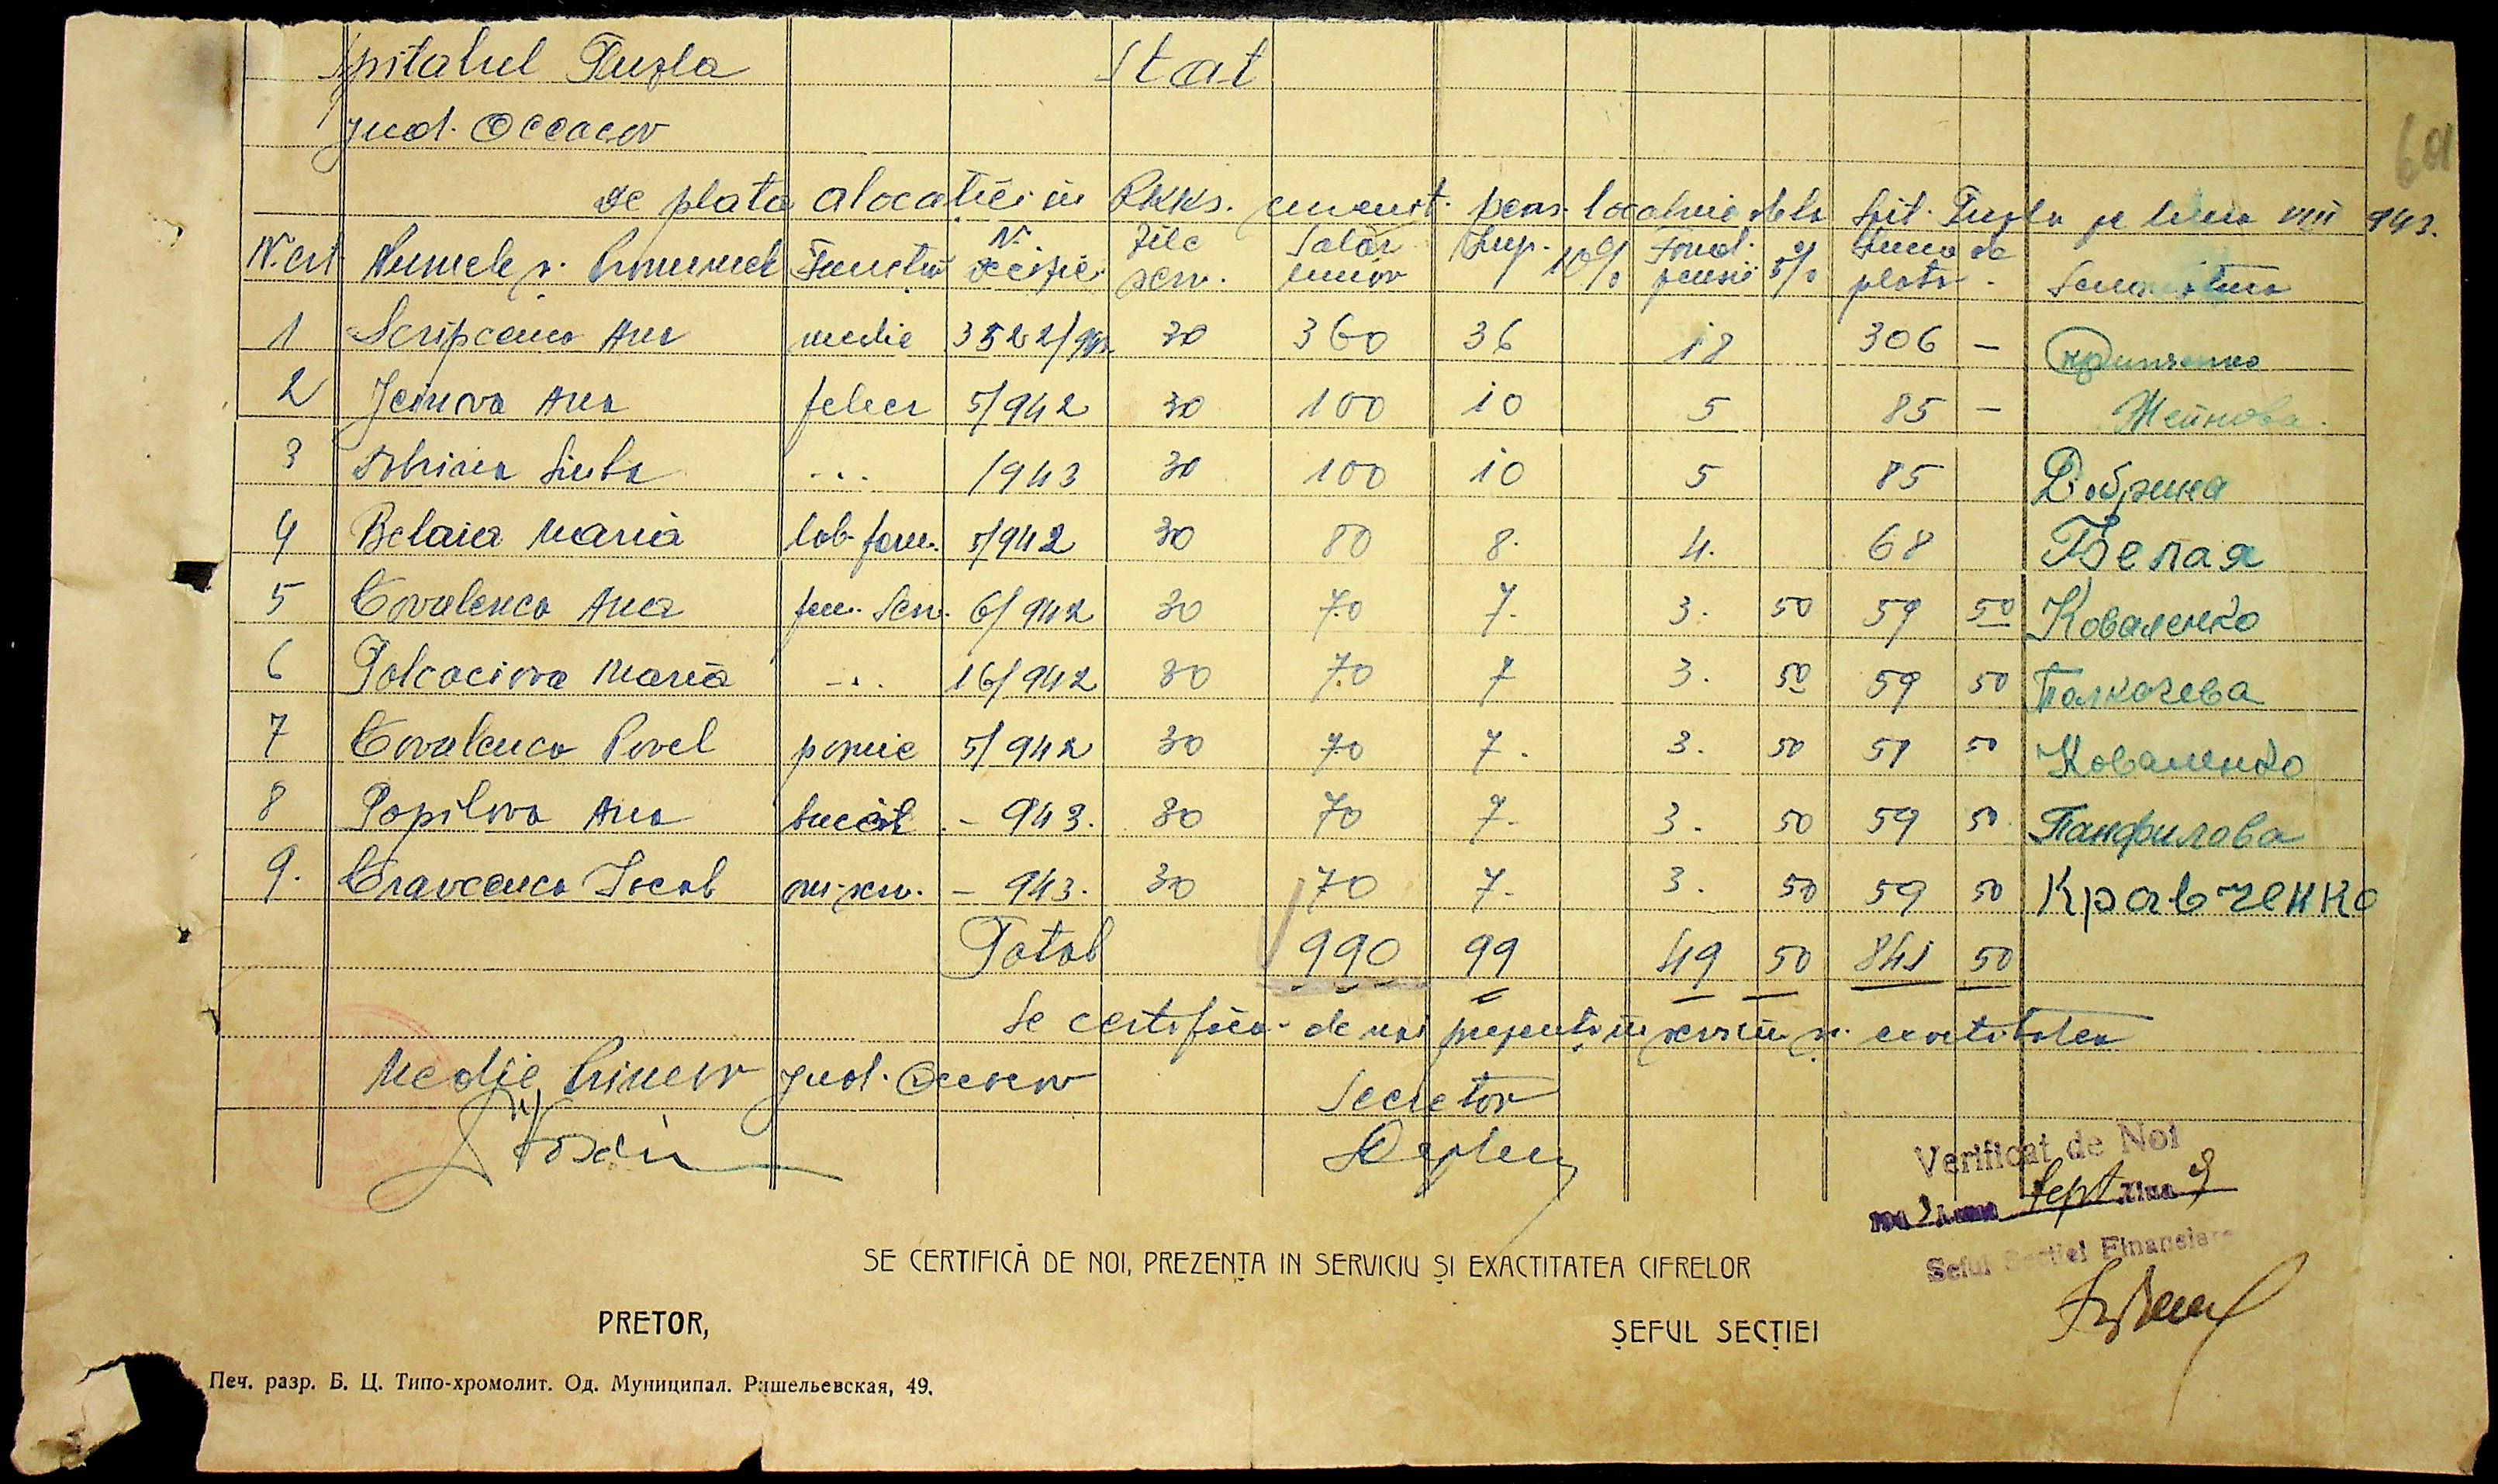 Spitalul Tuzla Stat
Jud. Oceacov
60
de plata alocației in RKKS. cuvenit. pers. localnic dela Spit. Tuzla pe luna VIII 943.
N. crt. Numele și Pronumele Funcția N. deciziei Zile serv. Salar lunar Imp. 10% Fond. pensii 5% Suma de plata. Semnatura
1 Scripcenco Ana medic 3522/942 30 360 36 18 306 –
2 Jeinova Ana felcer 5/942 30 100 10 5 85 – Жейнова
3 Dobrina Liuba -..- /943 30 100 10 5 85 Добрина
4 Belaia Maria lab-farm. 5/942 30 80 8. 4. 68 Белая
5 Covalenco Ana fem. Serv. 6/942 30 70 7. 3. 50 59 50 Коваленко
6 Polcaciova Maria -..- 16/942 30 70 7 3. 50 59 50 Палкачева
7 Covalenco Pavel 5/942 30 70 7. 3. 50 59 50 Коваленко
8 Papilova Ana bucăt. – 943. 30 70 7. 3. 50 59 50 Панфилова
9. Cravcenco Iacob om-serv. – 943. 30 70 7. 3. 50 59 50 Кравченко
Total 990 99 49 50 841 50
Se certifica de noi prezența in serviciu și exactitatea
Medic Primar Jud. Oceacov Secretar
Verificat de Noi
194 3 Luna Sept Ziua 9
Seful Sectiei Financiare
SE CERTIFICĂ DE NOI, PREZENȚA IN SERVICIU ȘI EXACTITATEA CIFRELOR
PRETOR, ȘEFUL SECȚIEI
Печ. разр. Б. Ц. Типо-хромолит. Од. Муниципал. Ришельевская, 49.